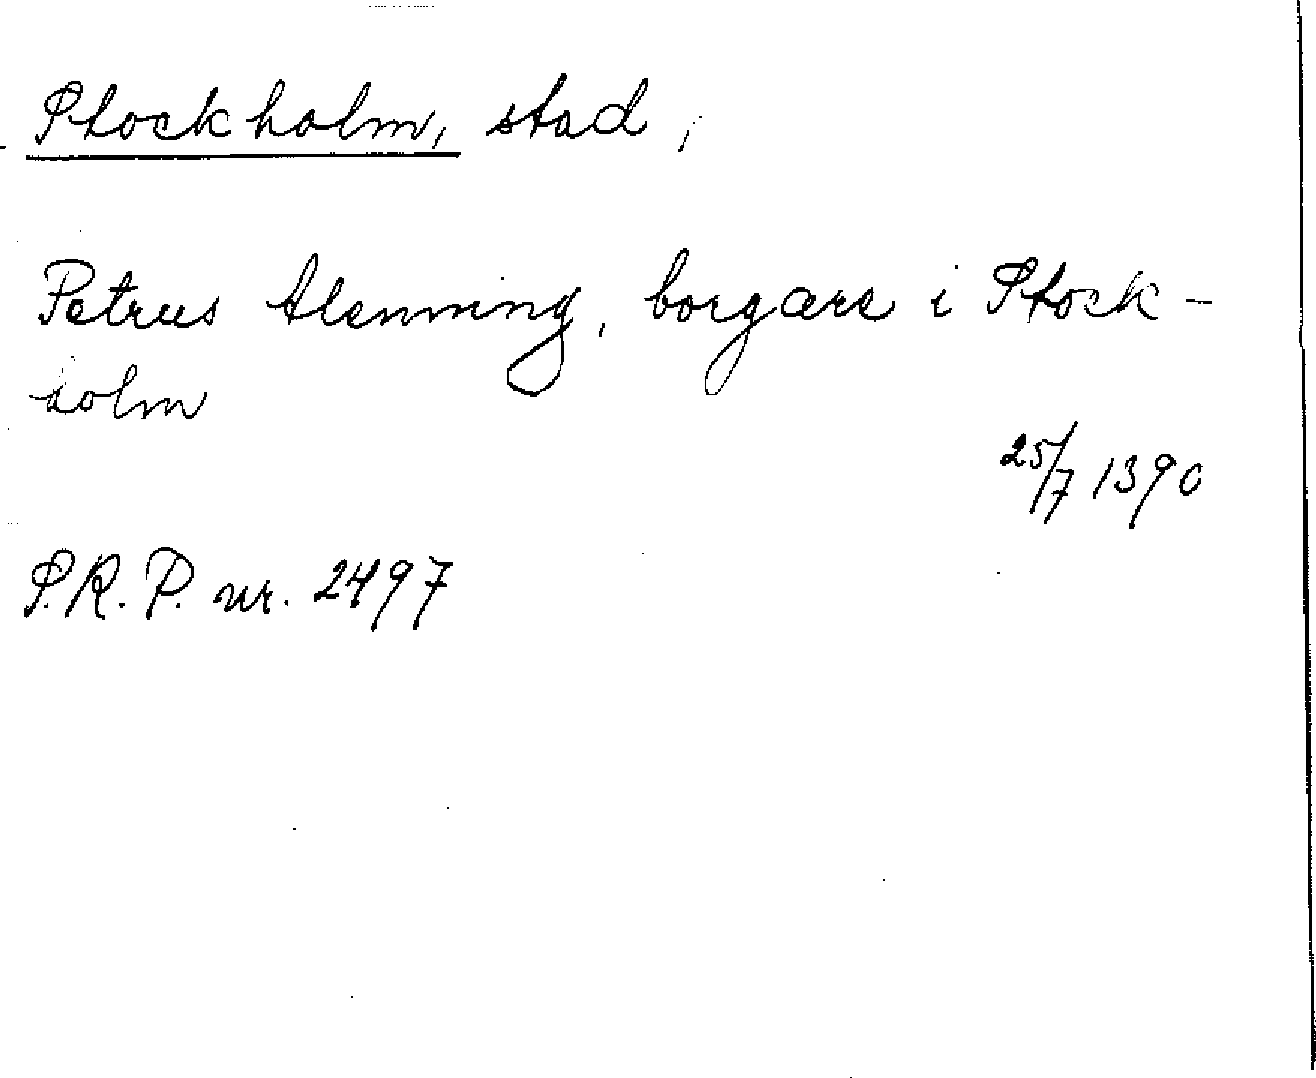 Stockholm, stad,
Petrus Ålänning, borgare i Stock-
holm
25/7 1390
S.R.P. nr. 2497